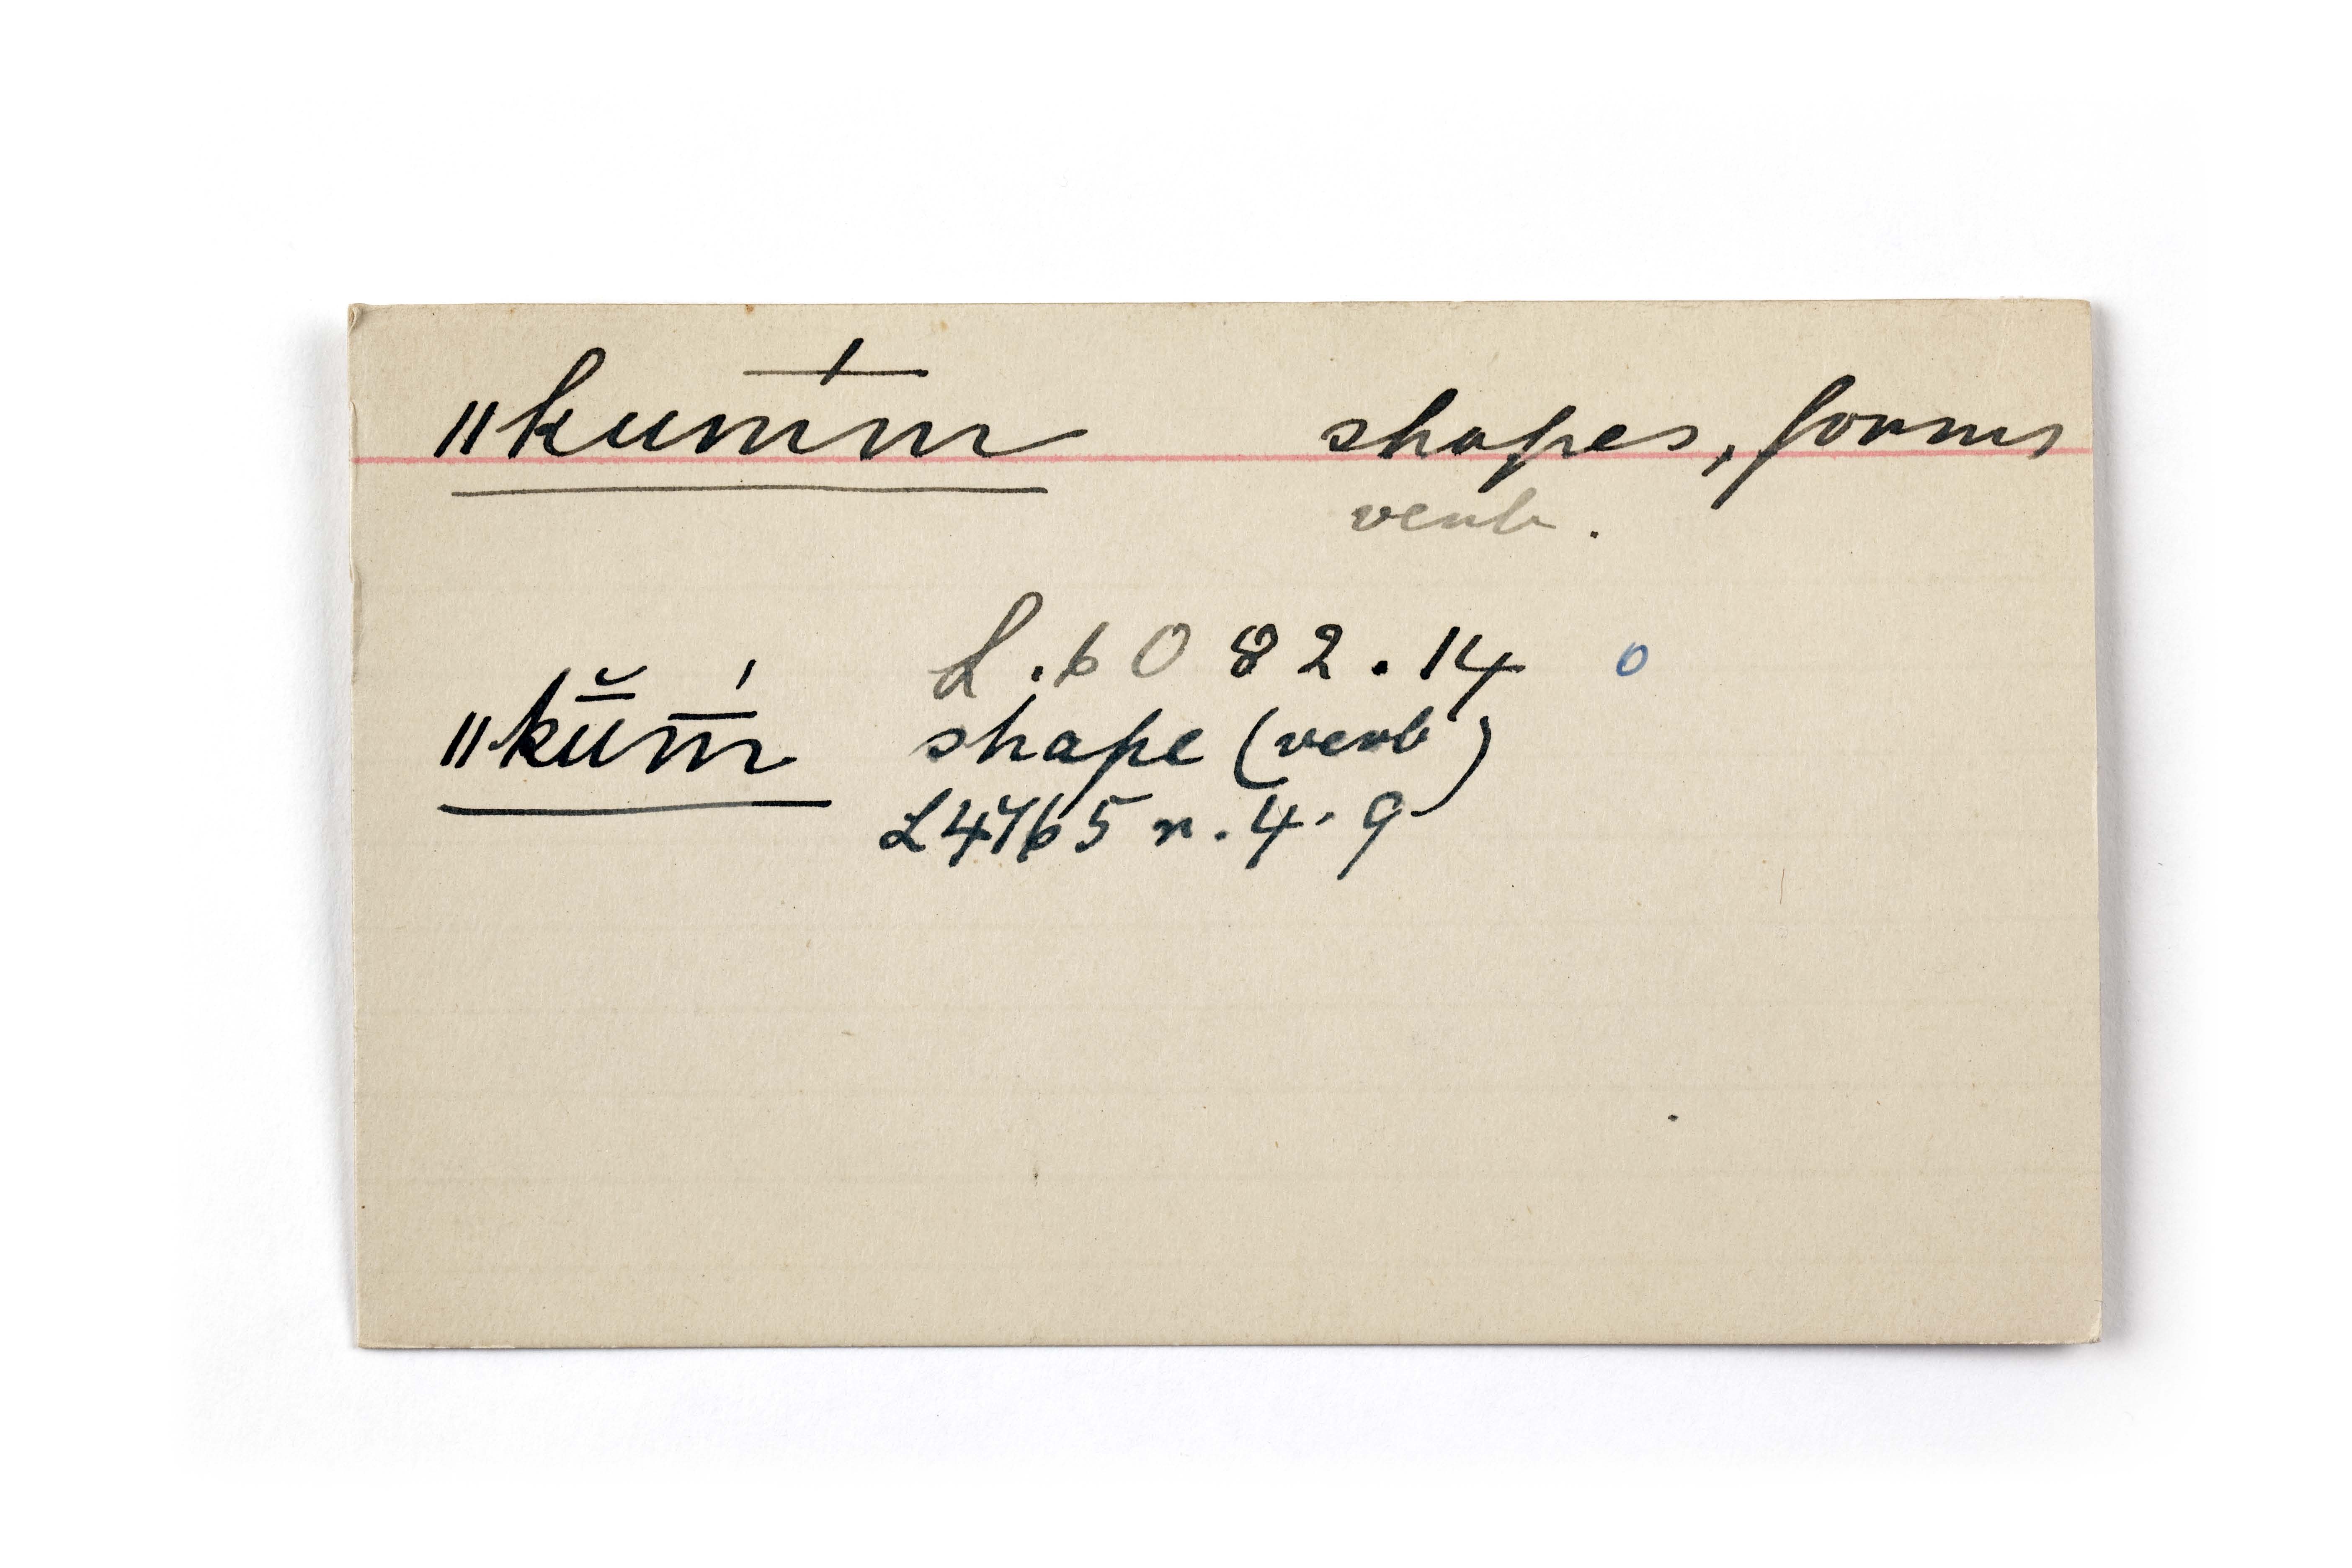 "kum̄́m shapes, forms
verb.
L.6082.14 o
"k̆̄um̄́ shape (verb)
L4765 r. 4. 9